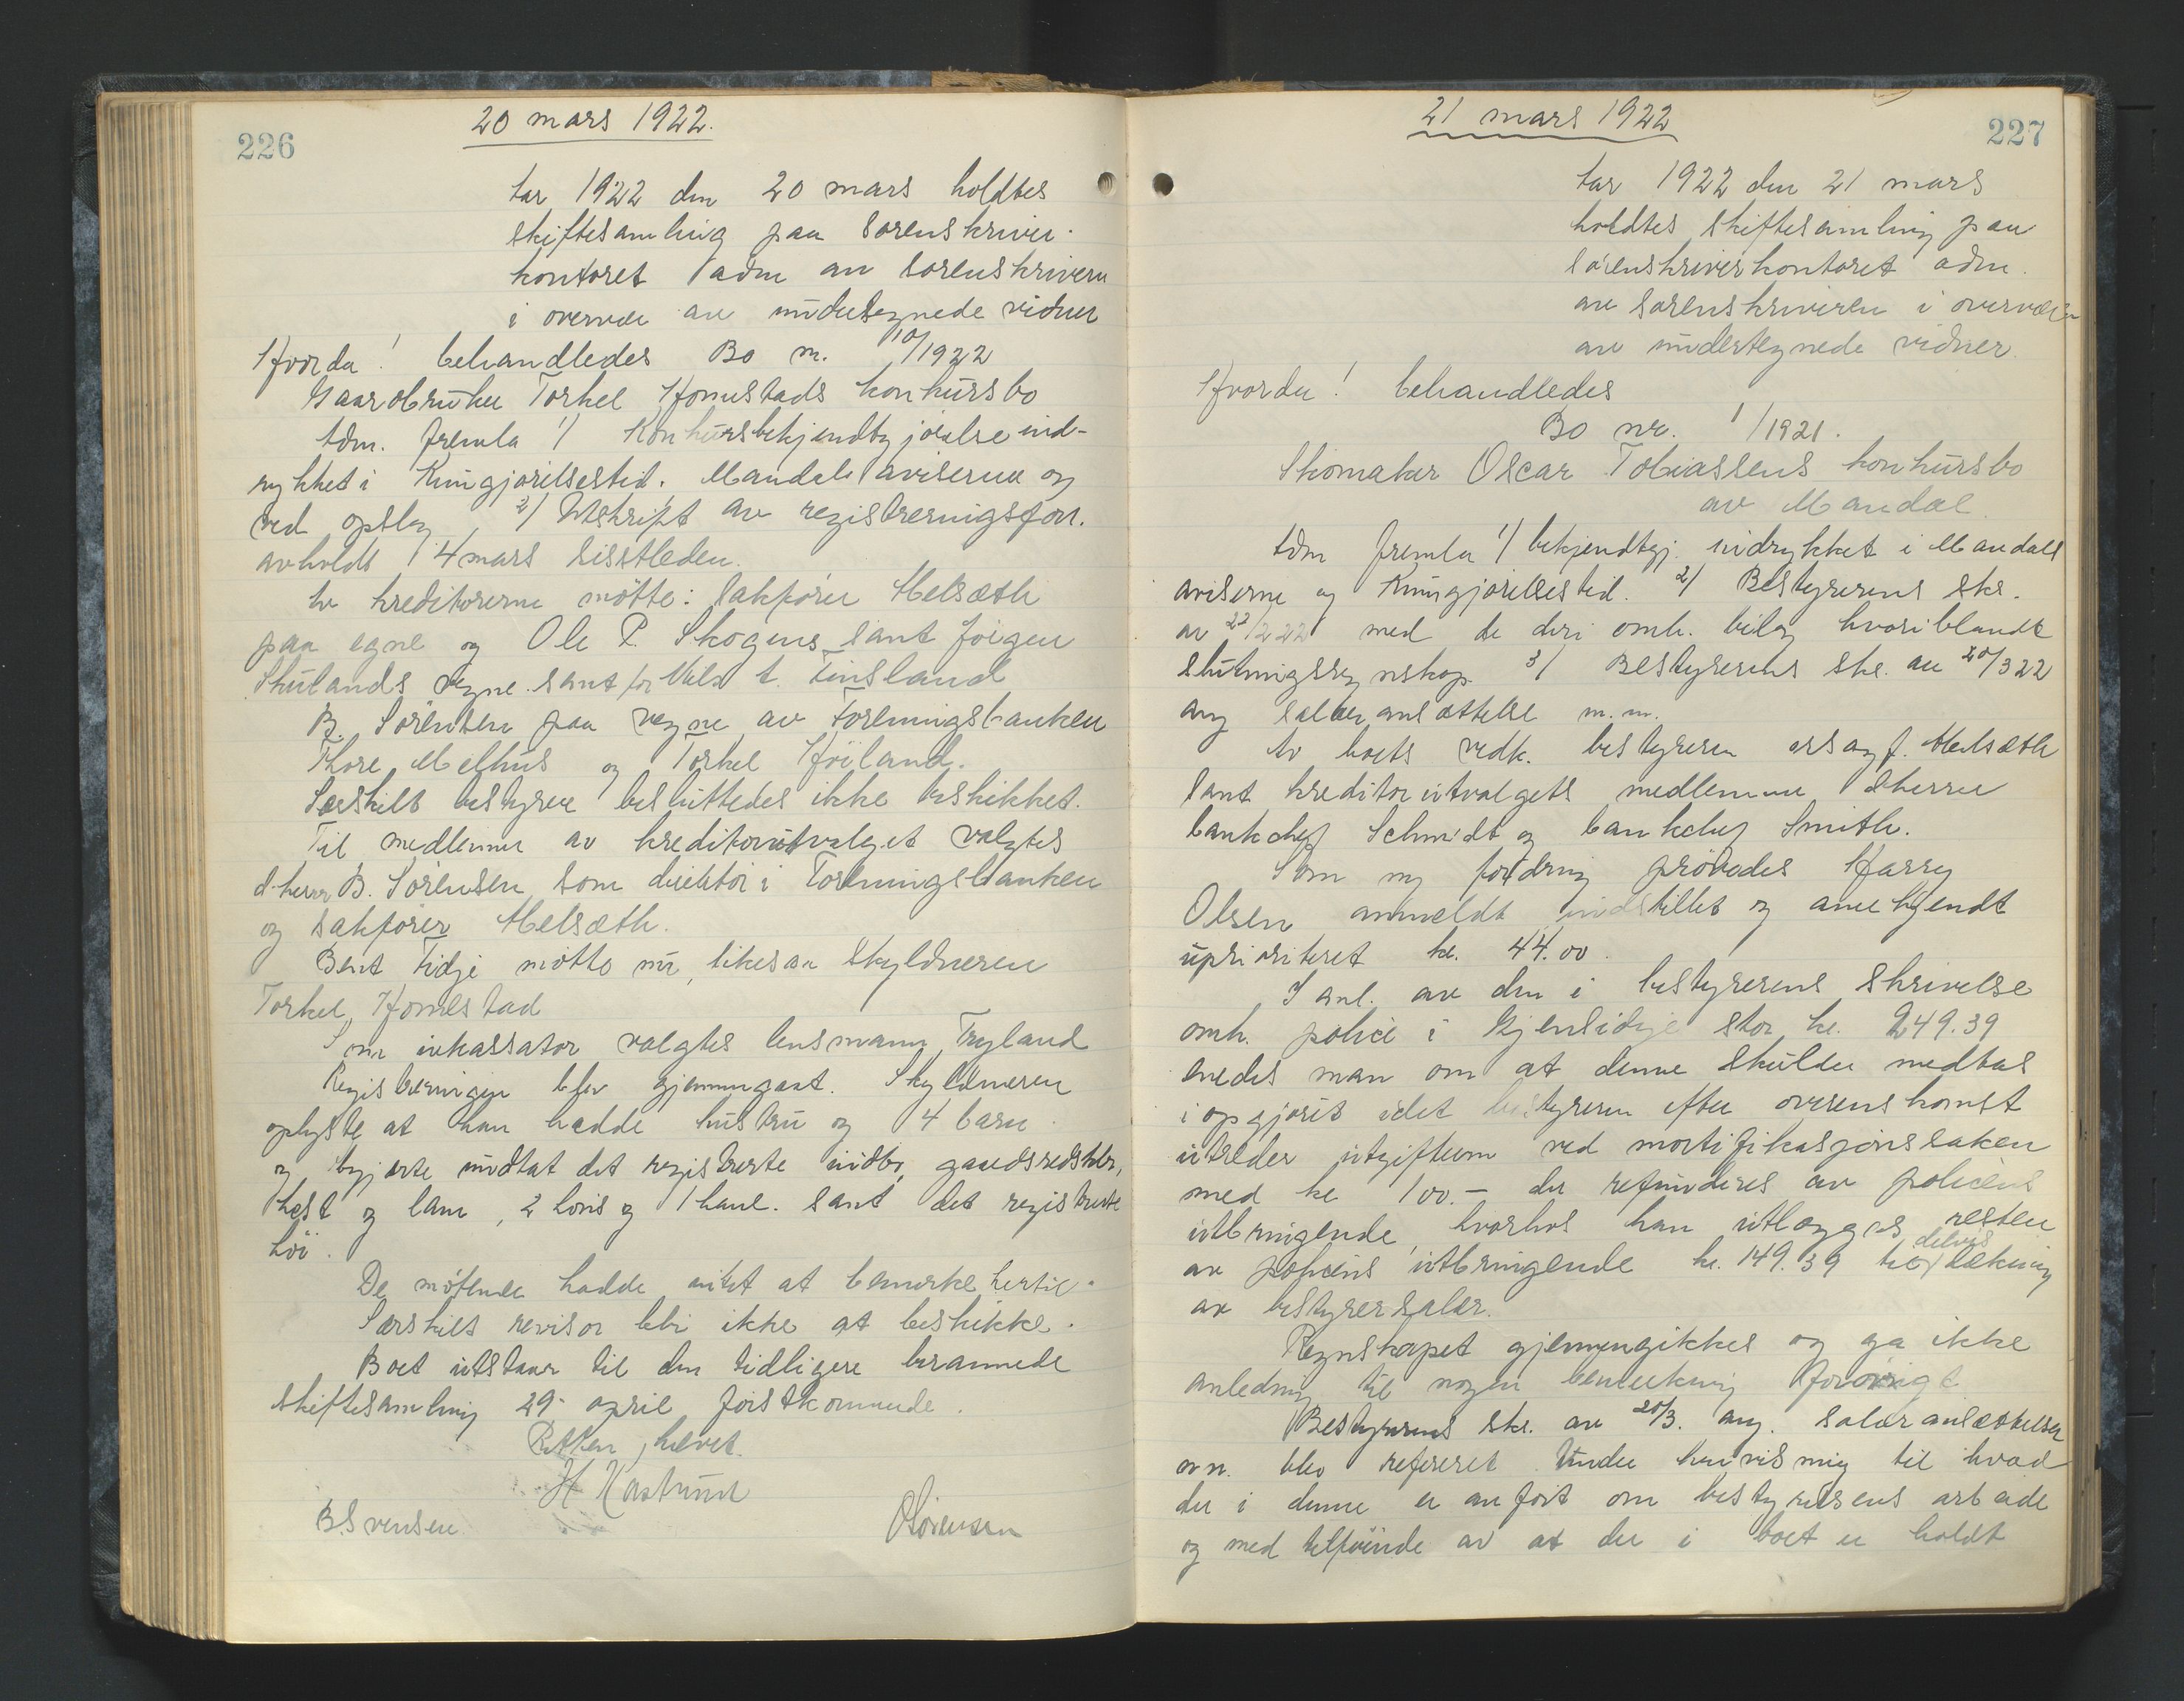 226
20 mars 1922.
Aar 1922 den 20 mars holdtes
skiftesamling paa Sorenskriver-
kontoret adm av sorenskriveren
i overvær av undertegnede vidner
Hvorda! behandledes Bo nr. 10/1922
Gaardbruker Torkel Homestads konkursbo
Adm. fremla 1/ Konkursbekjendtgjørelse ind-
rykket i Kungjørelsestid. Mandals aviserne og
ved opslag, 2/ Utskript av registreringsforr.
avholdt 14 mars sisstleden.
Av kreditorerne møtte: Sakfører Melsæth
paa egne og Ole P. Skogens samt Jørgen
Skulands vegne samt for Nils t. Finsland
B. Sörensen paa vegne av Foreningsbanken
Thore Melhus og Torkel Höiland.
Særskilt bestyrer besluttedes ikke beskikket.
Til medlemmer av kreditorutvalget valgtes
d'herrer B. Sörensen som direktör i Foreningsbanken
og sakfører Melsæth.
Bent Fidje møtte nu, likesaa skyldneren
Torkel Homestad
Som inkassator valgtes lensmann Tryland
Registreringen blev gjennemgaat. Skyldneren
oplyste at han hadde hustru og 4 barn
og begjærte undtat det registrerte indbo, gaardsredskaber,
hest og lam, 2 höns og 1 hane. samt det registrerte
höi.
De møtende hadde intet at bemerke hertil.
Særskilt revisor blir ikke at beskikke.
Boet utstaar til den tidligere berammede
skiftesamling 29- april førstkommende.
Retten hævet.
H Kastrund
B. Svensen OSörensen
21 mars 1922
227
Aar 1922 den 21 mars
holdtes skiftesamling paa
sörenskriverkontoret adm.
av sorenskriveren i overvær
av undertegnede vidner.
Hvorda! behandledes
Bo nr. 1/1921.
Skomaker Oscar Tobiassens konkursbo
av Mandal.
Adm fremla 1/ bekjendtgj. indrykket i Mandals
aviserne og Kungjørelsestid. 2/ Bestyrerens skr.
av 22/2 22 med de deri omh. bilag hvoriblandt
slutningsregnskap 3/ Bestyrerens skr. av 20/3 22
ang salæransættelse m.m.
Av boets vedk. bestyreren orsagf. Melsæth
samt kreditorutvalgets medlemmer dherrer
bankchef Schmidt og bankchef Smith.
Som ny fordring prövedes Harry
Olsen anmeldt indstillet og anerkjendt
uprioritert kr. 44.00.
I anl. av den i bestyrerens skrivelse
omh. police i Gjensidige stor kr. 249.39
enedes man om at denne skulde medtas
i opgjøret idet bestyreren efter overenskomst
utreder utgifterne ved mortifikasjonssaken
med kr 100.- der refunderes av policens
utbringende, hvorhos han utlægges resten
av policens utbringende kr. 149.39 til delvis dækning
av bestyrersalær.
Regnskapet gjennemgikkes og ga ikke
anledning til nogen bemerkning forøvrigt
Bestyrerens skr. av 20/3. ang. salæransættelse
m.v. blev refereret. Under henvisning til hvad
der i denne er anført om bestyrelsens arbeide
og med tilføiende av at der i boet er holdt